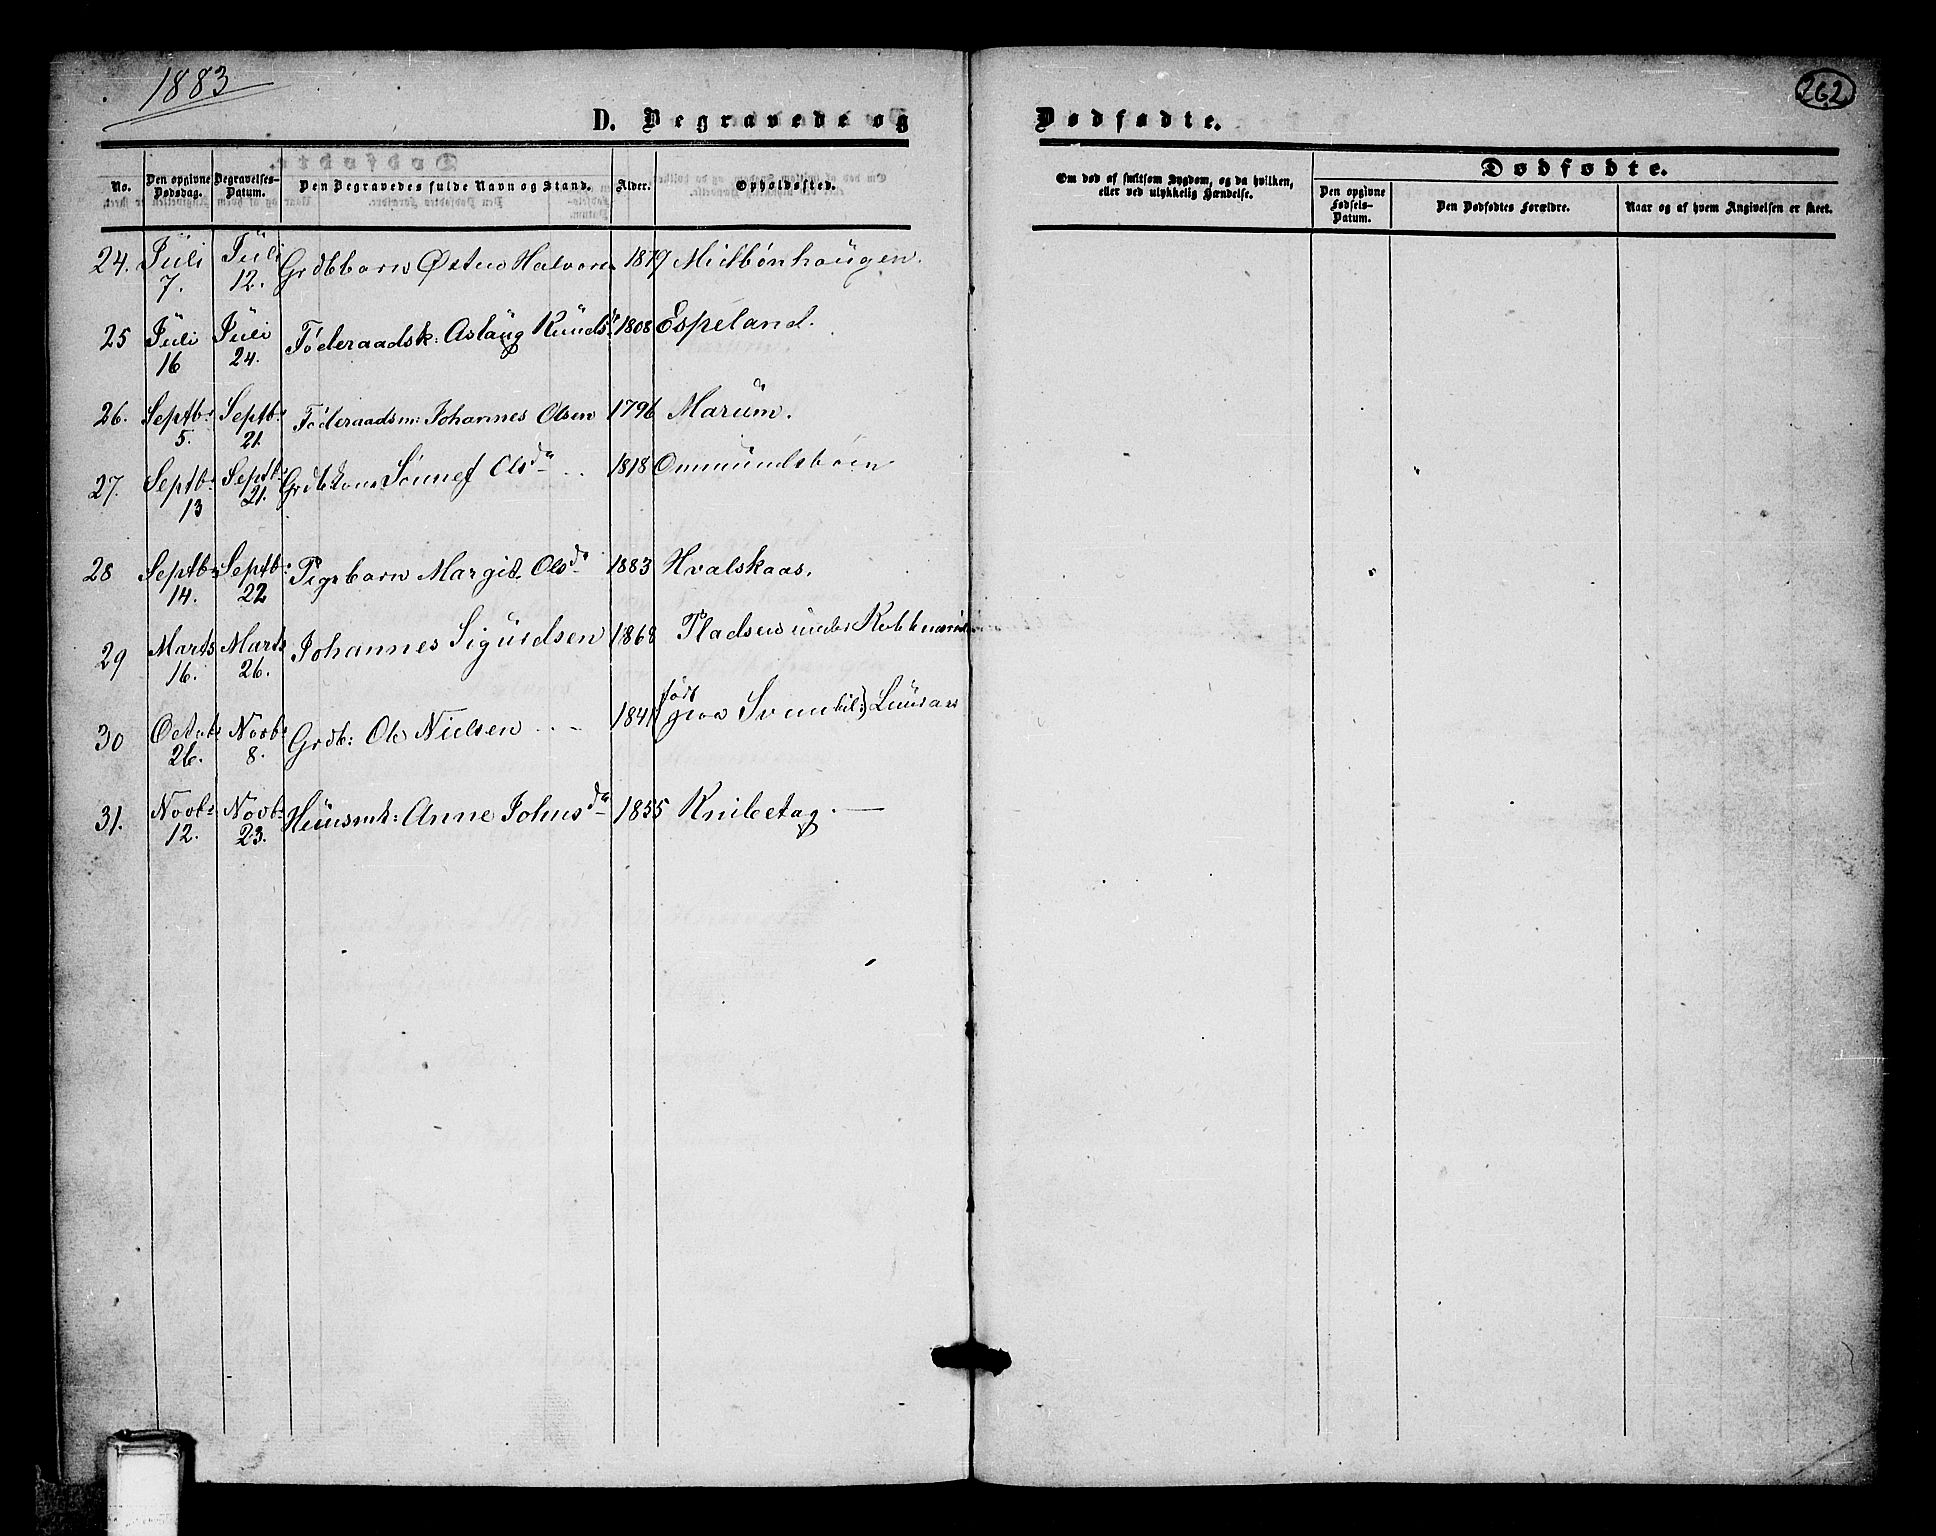 1883
262
D. Begravede og Dødfødte.
No. Den opgivne Dødsdag. Begravelses-Datum. Den Begravedes fulde Navn og Stand. Alder. Opholdssted.
Om død af smitsom Sygdom, og da hvilken, eller ved ulykkelig Hændelse.
Dødfødte.
Den opgivne Fødsels-Datum. Den Dødfødtes Forældre. Naar og af hvem Angivelsen er skeet.
24. Juli 7. Juli 12. Grdbbarn Østen Halvors 1879 Midtbønhaugen.
25 Juli 16 Juli 24. Føderaadsk: Aslaug Knudsd 1808 Espeland.
26. Septbr 5. Septbr 21. Føderaadsm: Johannes Olsen 1796 Marum.
27. Septbr 13 Septbr 21. Sønnef Olsda 1818 Ommundsbøen
28 Septbr 14. Septbr 22 Pigebarn Margit Olsda 1883 Hvalskaas.
29 Marts 16. Marts 26. Johannes Sigurdsen 1868 Pladsen under
30 Octobr 26. Novbr 8. Grdb: Ole Nielsen 1841 født paa
31. Novbr 12. Novbr 23. Huusmk: Anne Johnsda 1855 Knibetag.